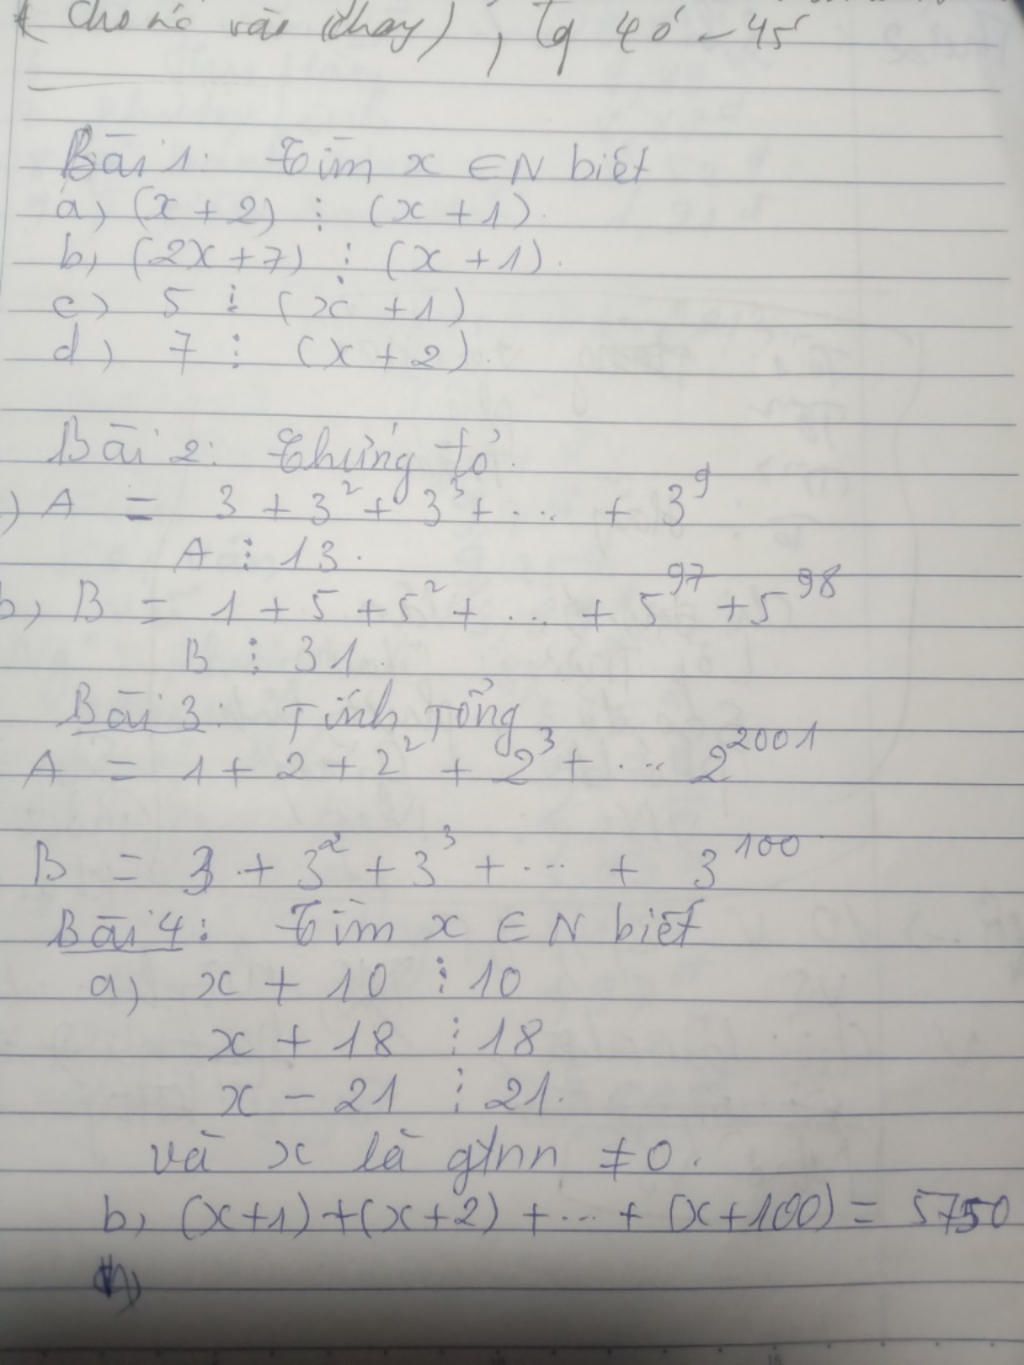 (thay), tg 40' - 45'
Bài 1: Tìm x ∈ N biết
a) (x + 2) ⋮ (x + 1).
b) (2x + 7) ⋮ (x + 1).
c) 5 ⋮ (x + 1)
d) 7 ⋮ (x + 2).
Bài 2: Chứng tỏ.
) A = 3 + 3² + 3³ + ... + 3⁹
A ⋮ 13.
b) B = 1 + 5 + 5² + ... + 5⁹⁷ + 5⁹⁸
B ⋮ 31.
Bài 3: Tính tổng
A = 1 + 2 + 2² + 2³ + ... 2²⁰⁰¹
B = 3 + 3² + 3³ + ... + 3¹⁰⁰
Bài 4: Tìm x ∈ N biết
a) x + 10 ⋮ 10
x + 18 ⋮ 18
x - 21 ⋮ 21.
và x là gtnn ≠ 0.
b) (x+1) + (x+2) + ... + (x+100) = 5750